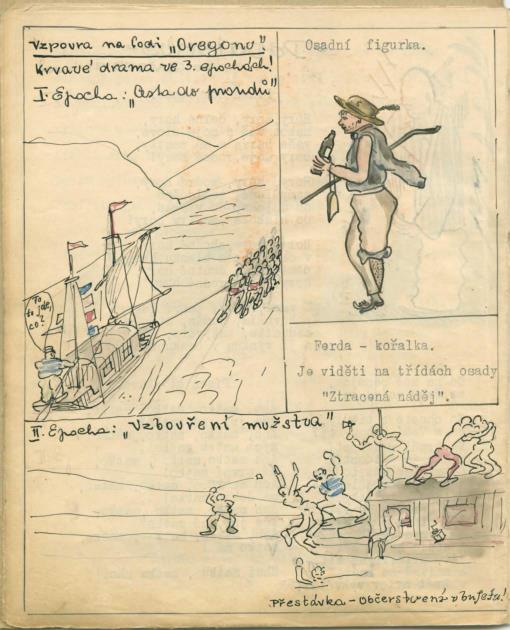 Vzpoura na lodi „Oregonu".
Krvavé drama ve 3. epochách!
I. Epocha: „Cesta do proudů"
to
to jde,
co?
Osadní figurka.
Ferda - kořalka.
Je viděti na třídách osady
"Ztracená náděj".
II. Epocha: „Vzbouření mužstva"
Přestávka - Občerstvení v bufetu!